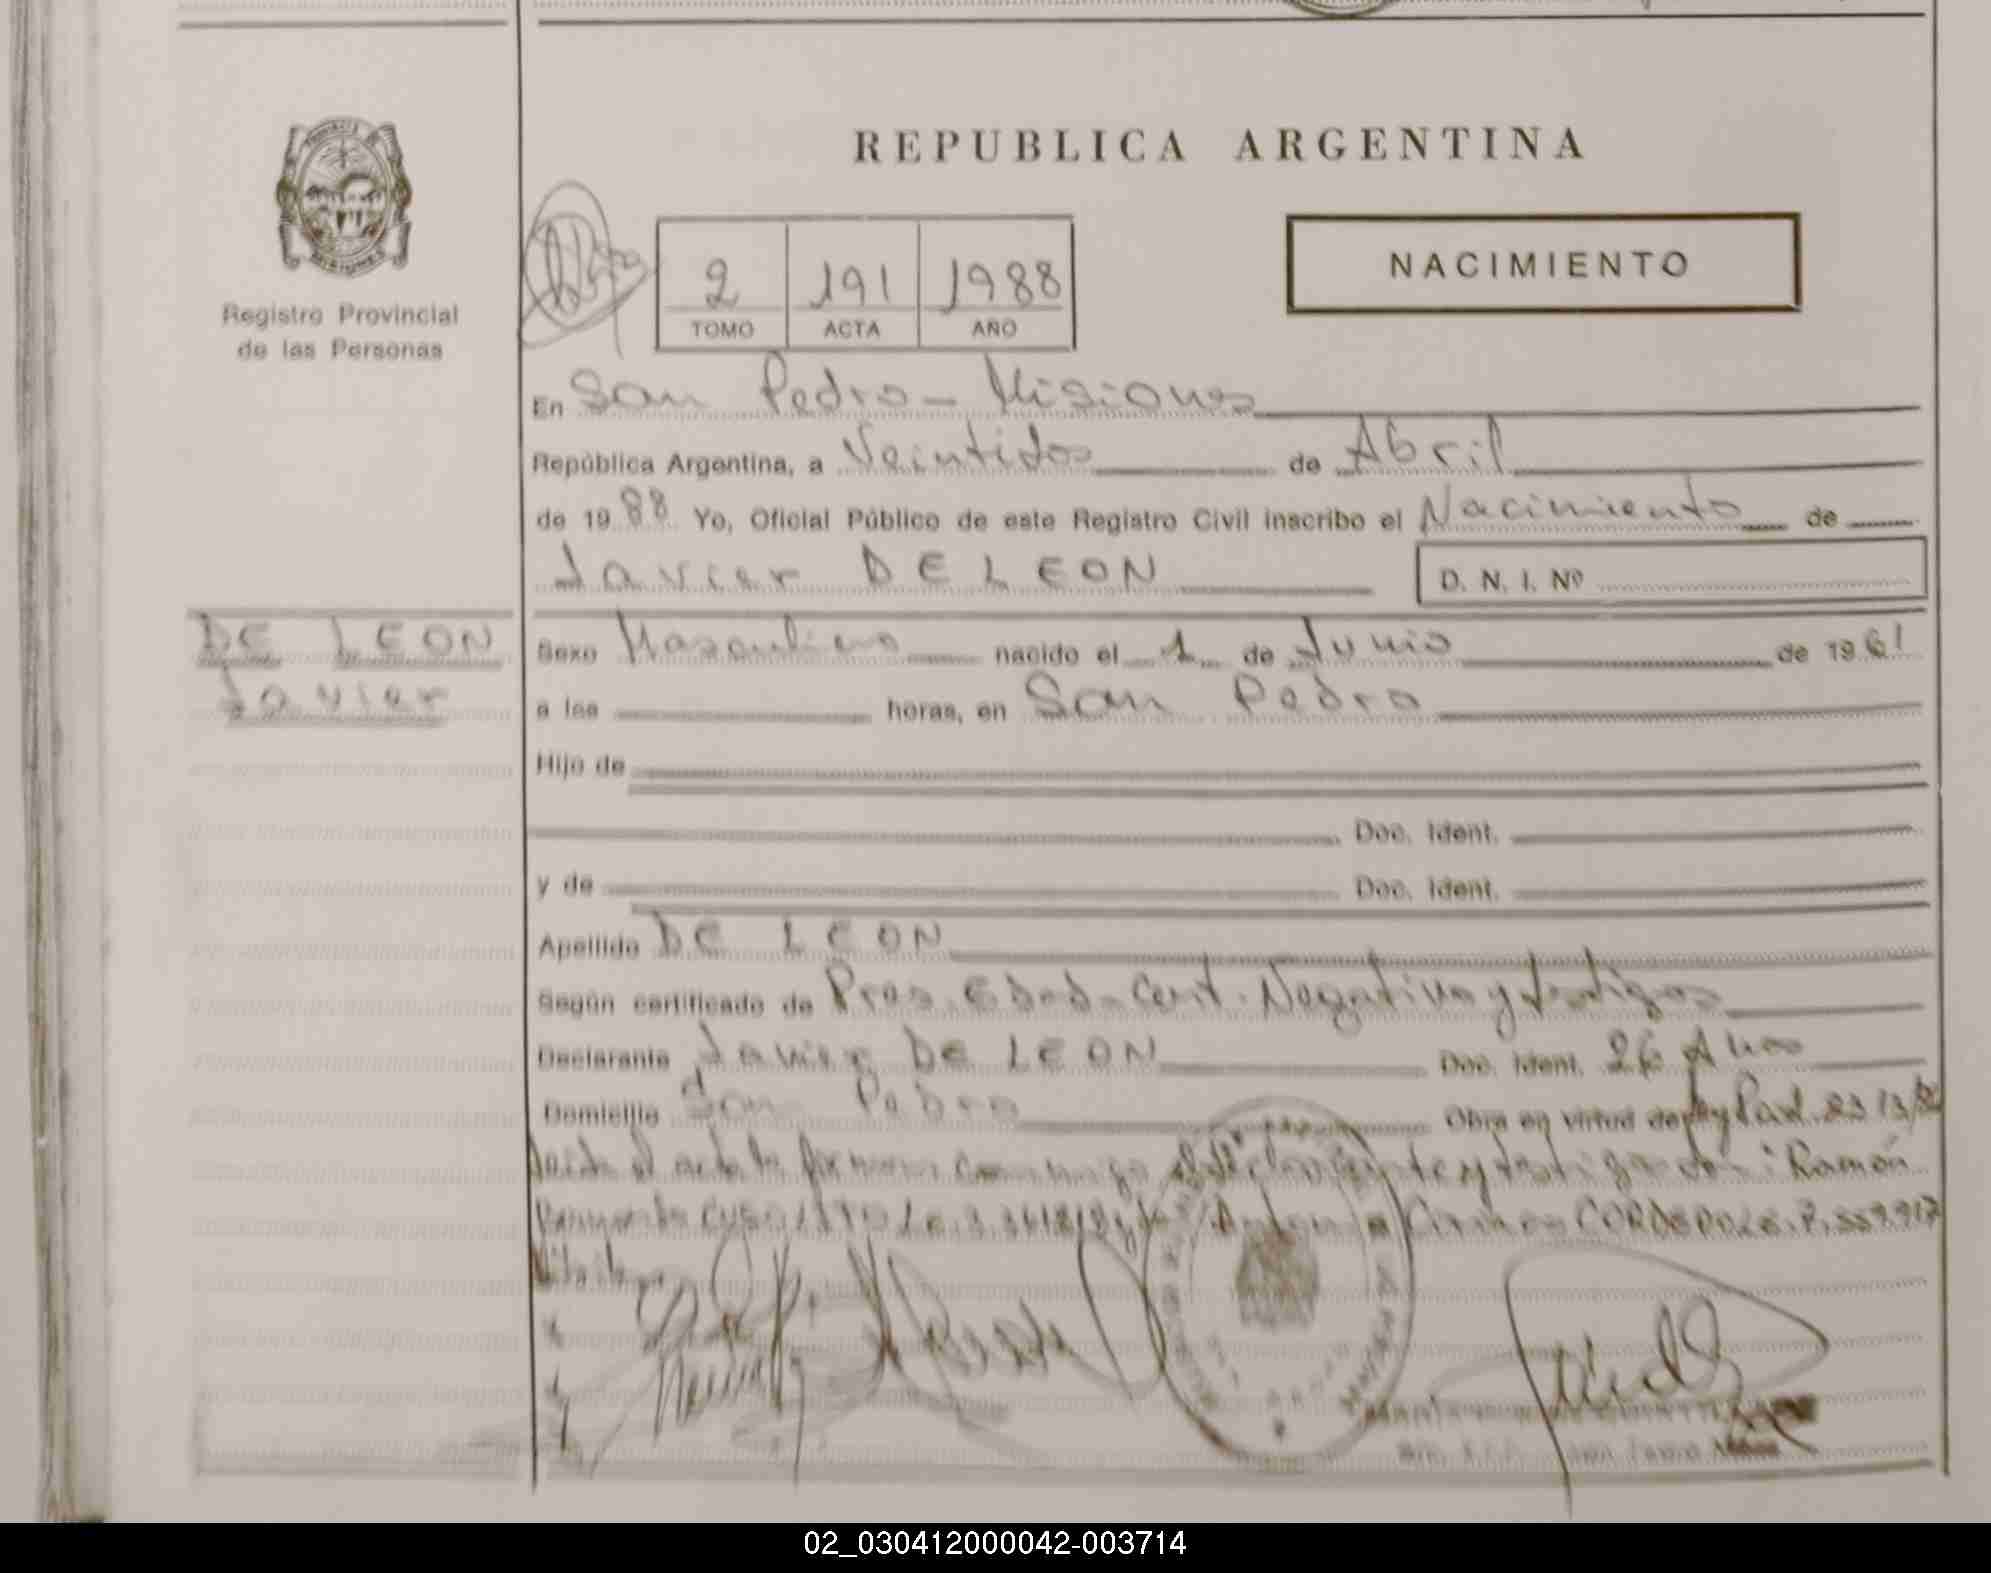 REPUBLICA ARGENTINA
MISIONES
Registro Provincial
de las Personas
2 191 1988
TOMO ACTA AÑO
NACIMIENTO
En San Pedro - Misiones
República Argentina, a Veintidos de Abril
de 1988 Yo, Oficial Público de este Registro Civil inscribo el Nacimiento de
Javier DE LEON
D. N. I. Nº
DE LEON
Javier
Sexo Masculino nacido el 1 de Junio de 1961
a las horas, en San Pedro
Hijo de
Doc. Ident.
y de Doc. Ident.
Apellido DE LEON
Según certificado de Pres. Edad - Cert. Negativo y testigos
Declarante Javier DE LEON Doc. Ident. 26 Años
Domicilio San Pedro Obra en virtud de
el acta la firman conmigo el declarante y testigos : Ramón
Antonia CORDERO
02_030412000042-003714